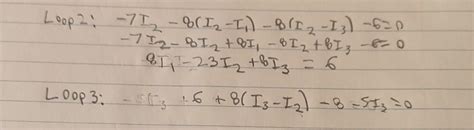 Loop2: -7I₂ -8(I₂-I₁) -8(I₂-I₃) -6=0
-7I₂-8I₂+8I₁-8I₂+8I₃ -6=0
8I₁-23I₂+8I₃ = 6
Loop3: +6 +8(I₃-I₂) -8 -5I₃=0